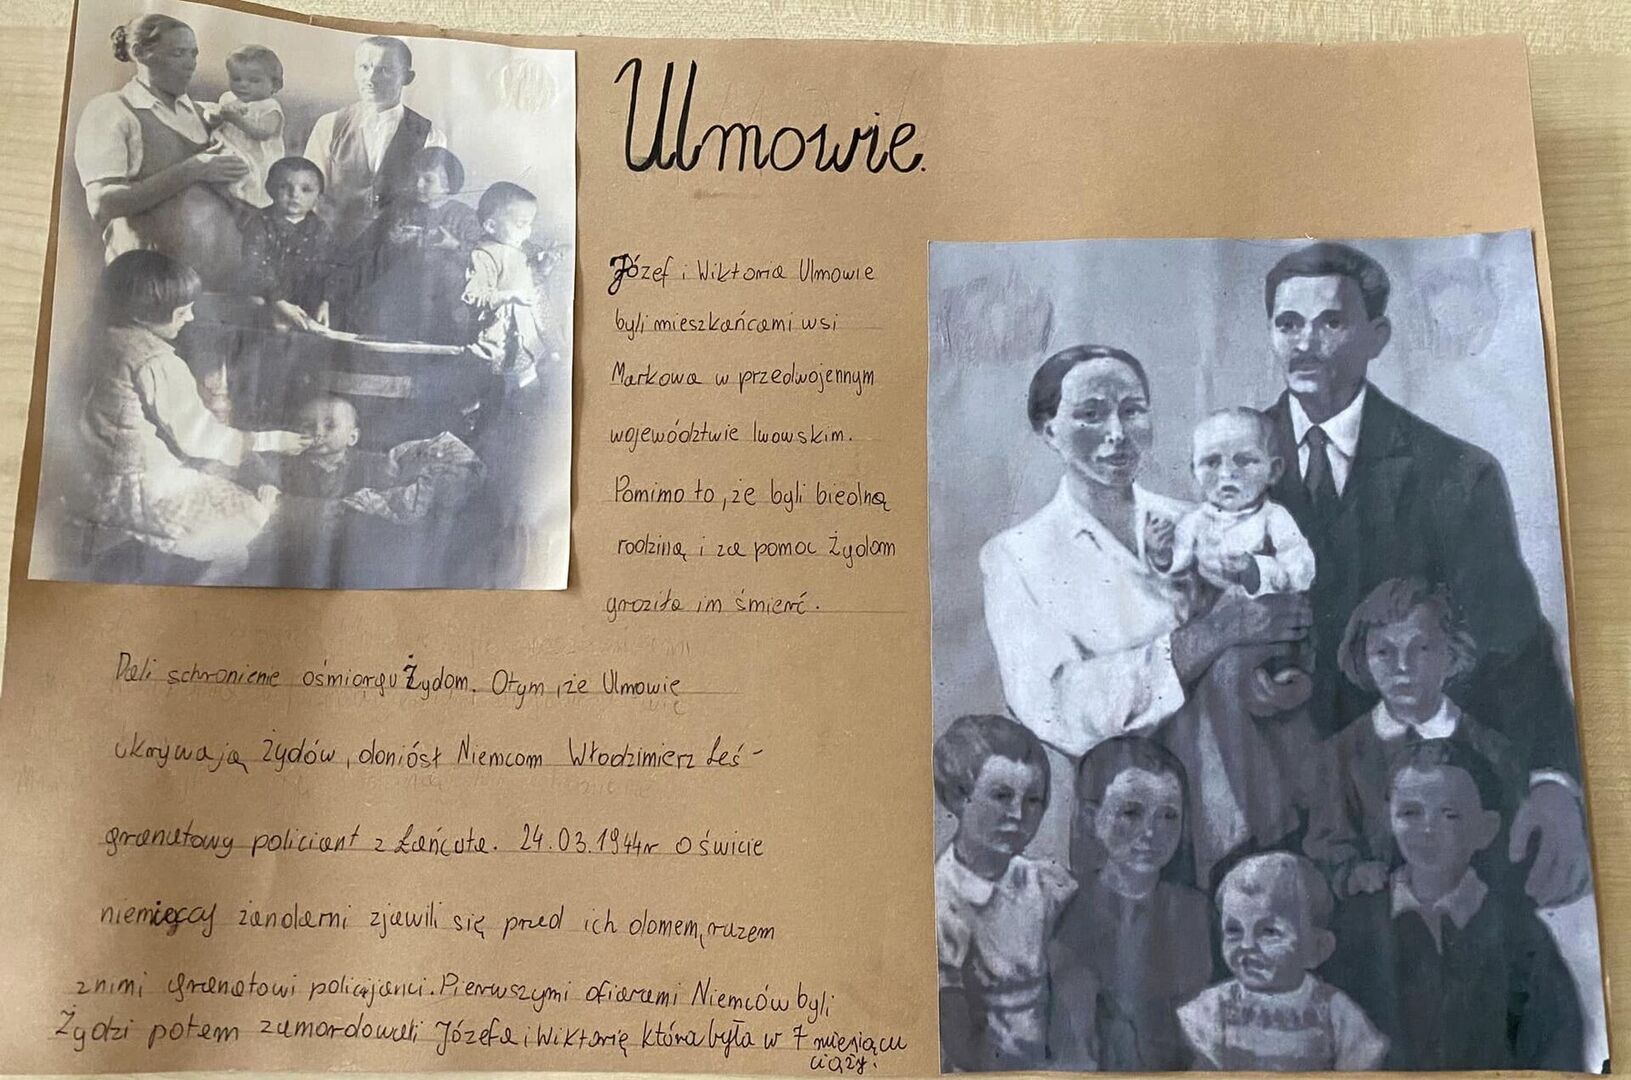 Ulmowie.
Józef i Wiktoria Ulmowie
byli mieszkańcami wsi
Markowa w przedwojennym
województwie lwowskim.
Pomimo to, że byli biedną
rodziną i za pomoc Żydom
groziła im śmierć.
Dali schronienie ośmiorgu Żydom. Otym, że Ulmowie
ukrywają żydów, doniósł Niemcom Włodzimierz Leś-
granatowy policiant z Łańcuta. 24.03.1944r o świcie
niemieccy żandarmi zjawili się przed ich domem, razem
z nimi granatowi policjanci. Pierwszymi ofiarami Niemców byli
Żydzi potem zamordowali Józefa i Wiktorię która była w 7 miesiącu
ciąży.